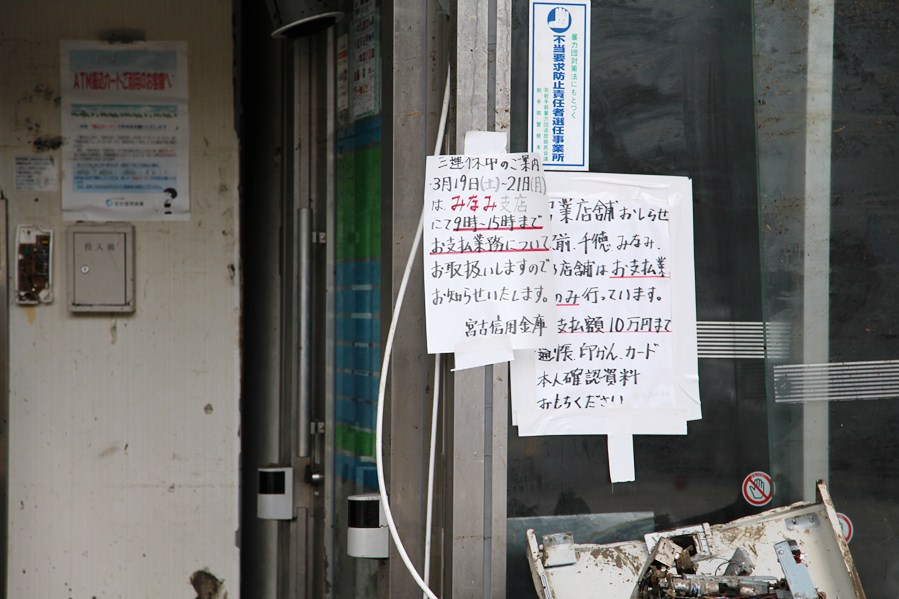 ATM
投入口
暴力団対策法にもとづく
不当要求防止責任者選任事業所
三連休中のご案内
3月19日(土)~21日(月)
は、みなみ支店
にて9時~15時まで
お支払業務について
お取扱いしますので
お知らせいたします。
宮古信用金庫
業店舗おしらせ
前、千徳、みなみ、
店舗はお支払業
のみ行っています。
支払額10万円まで
通帳、印かん、カード
本人確認資料
おもちください